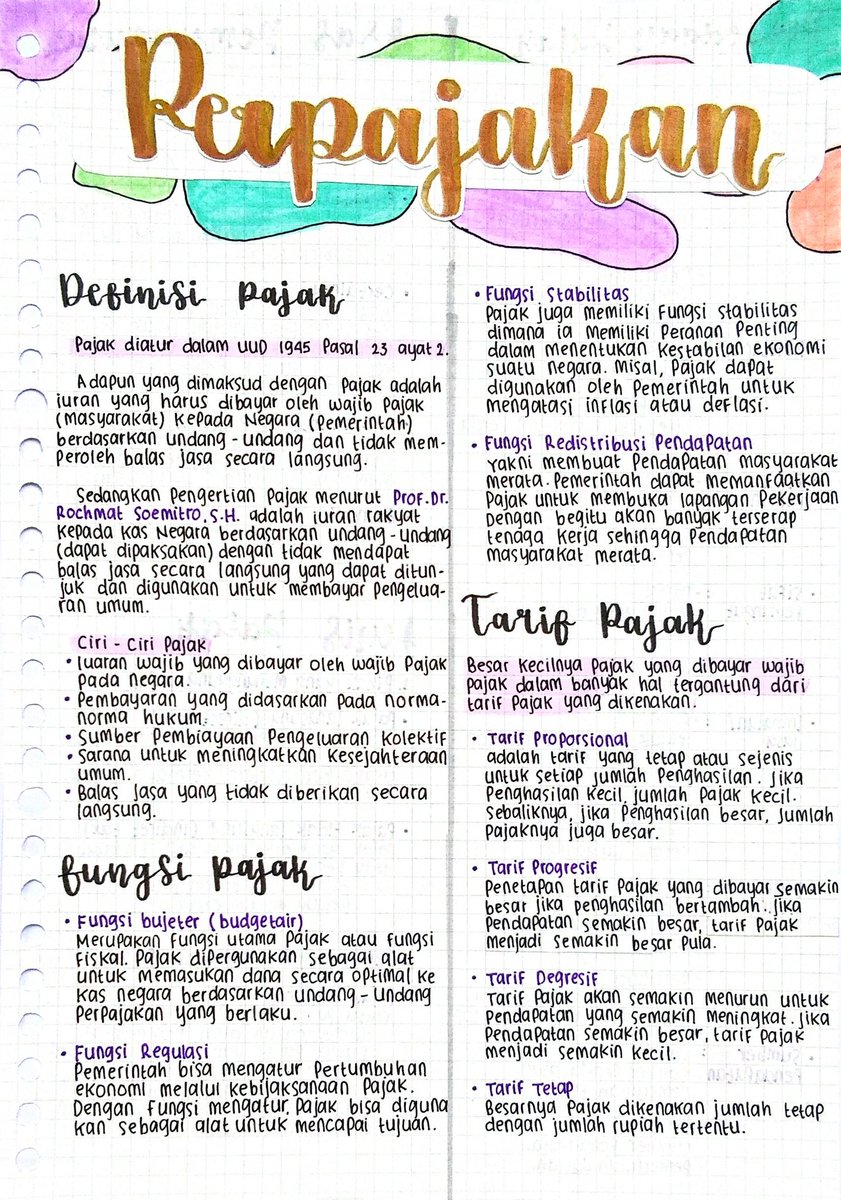 Perpajakan
Definisi Pajak
Pajak diatur dalam UUD 1945 Pasal 23 ayat 2.
Adapun yang dimaksud dengan Pajak adalah
iuran yang harus dibayar oleh wajib Pajak
(Masyarakat) kepada Negara (Pemerintah)
berdasarkan undang-undang dan tidak mem-
peroleh balas jasa secara langsung.
Sedangkan Pengertian Pajak menurut Prof. Dr.
Rochmat Soemitro, S.H. adalah iuran rakyat
kepada kas Negara berdasarkan undang-undang
(dapat dipaksakan) dengan tidak mendapat
balas jasa secara langsung yang dapat ditun-
juk dan digunakan untuk membayar Pengelua-
ran umum.
Ciri - Ciri Pajak
• Iuaran wajib yang dibayar oleh wajib Pajak
pada negara.
• Pembayaran yang didasarkan pada norma-
norma hukum.
• Sumber Pembiayaan Pengeluaran Kolektif
• Sarana untuk meningkatkan Kesejahteraan
umum.
• Balas Jasa yang tidak diberikan secara
langsung.
Fungsi Pajak
• Fungsi bujeter (budgetair)
Merupakan Fungsi utama Pajak atau Fungsi
Fiskal. Pajak dipergunakan sebagai alat
untuk memasukan dana secara optimal ke
kas negara berdasarkan undang-undang
Perpajakan yang berlaku.
• Fungsi Regulasi
Pemerintah bisa mengatur Pertumbuhan
ekonomi melalui kebijaksanaan Pajak.
Dengan Fungsi mengatur, Pajak bisa diguna
kan sebagai alat untuk mencapai tujuan.
• Fungsi Stabilitas
Pajak juga memiliki Fungsi stabilitas
dimana ia memiliki Peranan Penting
dalam menentukan kestabilan ekonomi
suatu negara. Misal, Pajak dapat
digunakan oleh Pemerintah untuk
mengatasi inflasi atau deflasi.
• Fungsi Redistribusi Pendapatan
Yakni membuat Pendapatan masyarakat
merata. Pemerintah dapat memanfaatkan
Pajak untuk membuka lapangan Pekerjaan
Dengan begitu akan banyak terserap
tenaga kerja sehingga Pendapatan
masyarakat merata.
Tarif Pajak
Besar kecilnya Pajak yang dibayar wajib
Pajak dalam banyak hal tergantung dari
tarif Pajak yang dikenakan.
• Tarif Proporsional
adalah tarif yang tetap atau sejenis
untuk setiap jumlah Penghasilan. Jika
Penghasilan kecil, jumlah Pajak kecil.
Sebaliknya, jika Penghasilan besar, Jumlah
Pajaknya juga besar.
• Tarif Progresif
Penetapan tarif Pajak yang dibayar semakin
besar jika penghasilan bertambah. Jika
Pendapatan semakin besar, tarif Pajak
menjadi semakin besar Pula.
• Tarif Degresif
Tarif Pajak akan semakin menurun untuk
Pendapatan yang semakin meningkat. Jika
Pendapatan semakin besar, tarif Pajak
menjadi semakin kecil.
• Tarif Tetap
Besarnya Pajak dikenakan jumlah tetap
dengan jumlah rupiah tertentu.